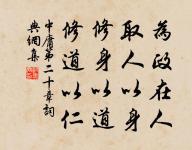 為政在人
取人以身
修身以道
修道以仁
中庸第二十章詞
典網集